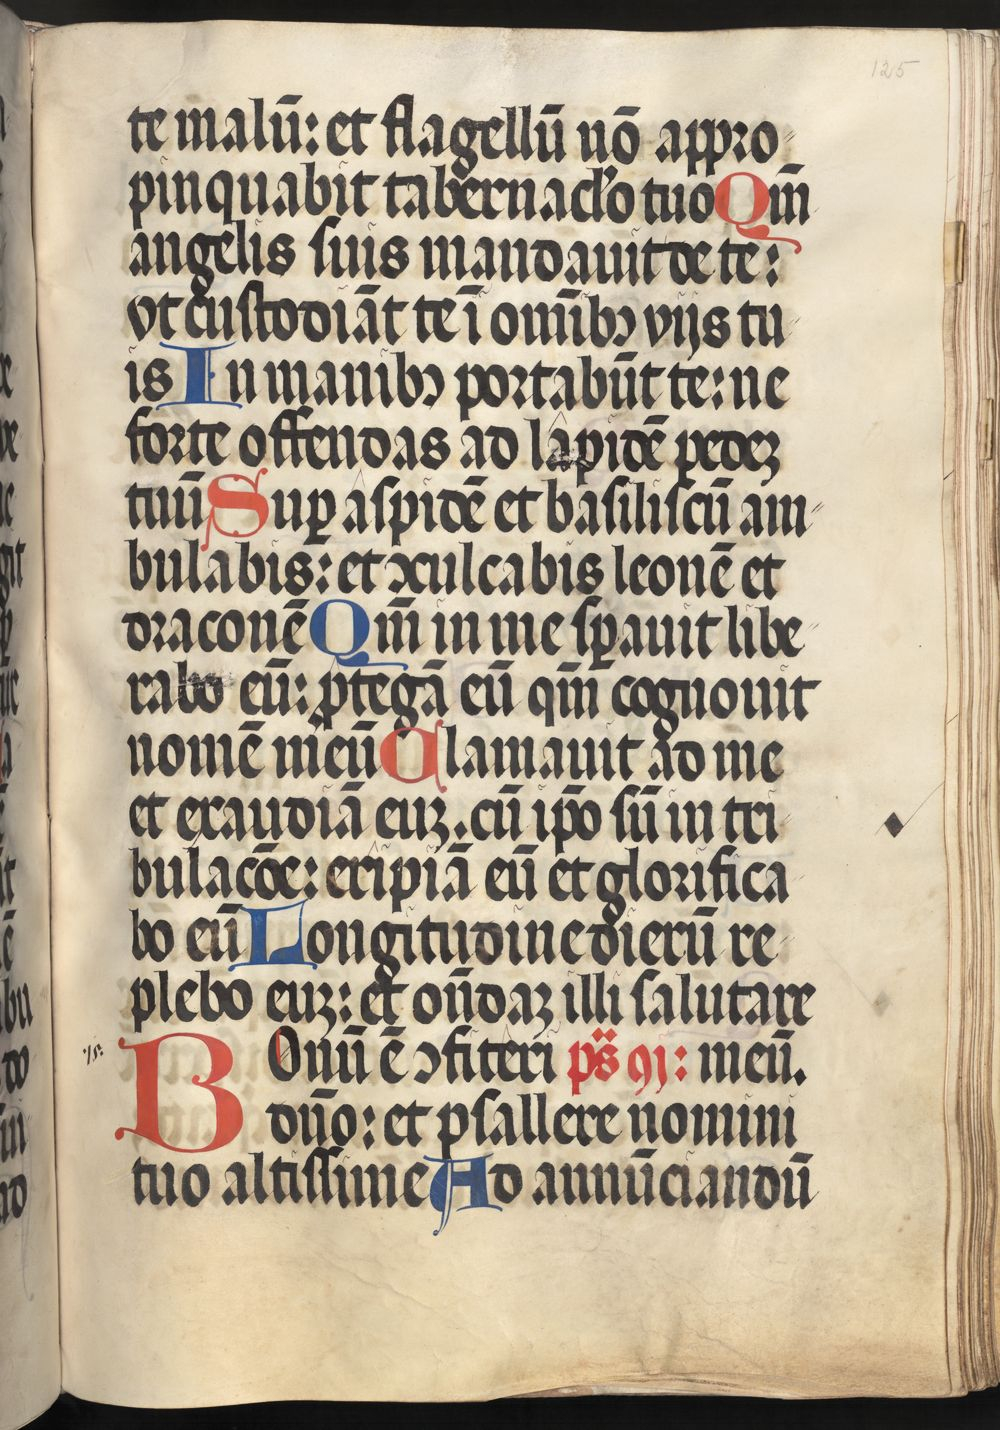 125
te malū: et flagellū nō appro
pinquabit tabernac̄lo tuo Qm̄
angelis suis mandauit de te:
vt custodiāt te ī om̄ibꝰ vijs tu
is In manibꝰ portabūt te: ne
forte offendas ad lapidē pedeꝫ
tuū Suꝑ aspidē et basiliscū am
bulabis: et ꝯculcabis leonē et
draconē Qm̄ in me sꝑauit libe
rabo eū: ꝓtegā eū qm̄ cognouit
nomē meū Clamauit ad me
et exaudiā euꝫ. cū ip̄o sū in tri
bulac̄oe: eripiā eū et glorifica
bo eū Longitudine dierū re
plebo euꝫ: et on̄daꝫ illi salutare
Bonū ē ꝯfiteri p̄s 91: meū.
dn̄o: et psallere nomini
tuo altissime Ad annūciandū